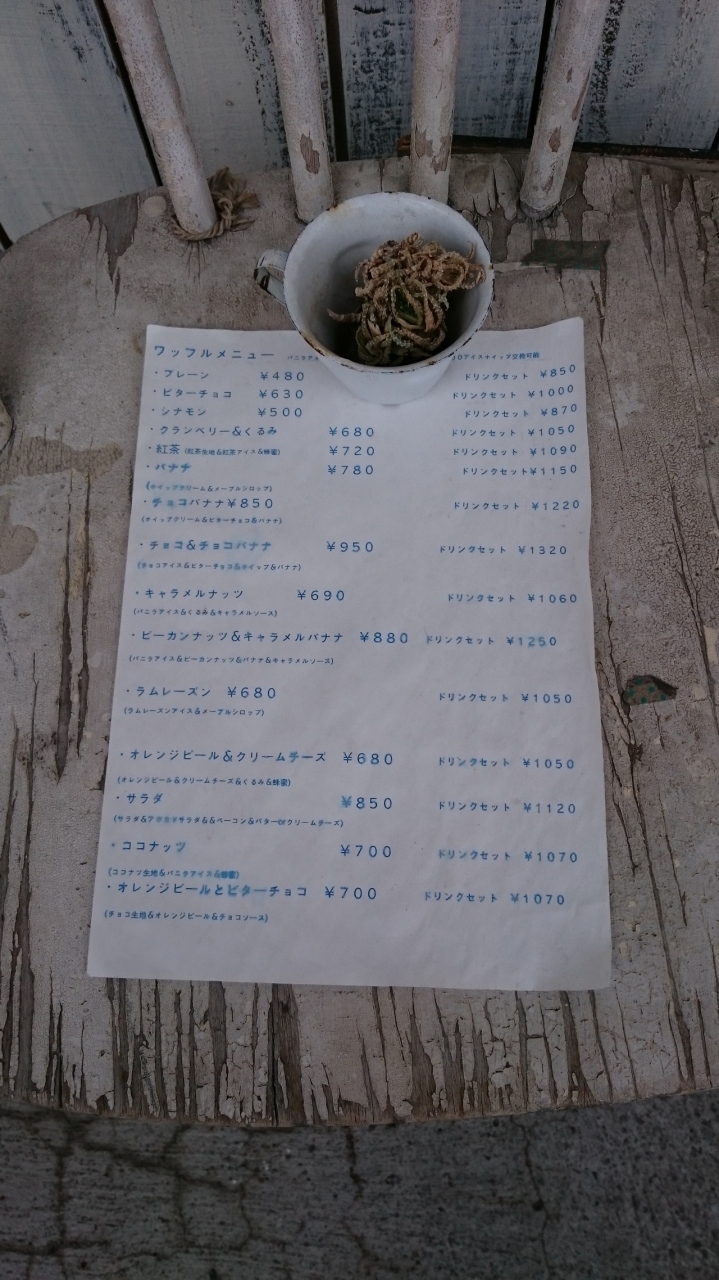 ワッフルメニュー バニラアイ 0アイスホイップ変更可能
・プレーン ¥480 ドリンクセット ¥850
・ビターチョコ ¥630 ドリンクセット ¥1000
・シナモン ¥500 ドリンクセット ¥870
・クランベリー&くるみ ¥680 ドリンクセット ¥1050
・紅茶 (紅茶生地&紅茶アイス&蜂蜜) ¥720 ドリンクセット ¥1090
・バナナ ¥780 ドリンクセット¥1150
(ホイップクリーム&メープルシロップ)
・チョコバナナ¥850 ドリンクセット ¥1220
(ホイップクリーム&ビターチョコ&バナナ)
・チョコ&チョコバナナ ¥950 ドリンクセット ¥1320
(チョコアイス&ビターチョコ&ホイップ&バナナ)
・キャラメルナッツ ¥690 ドリンクセット ¥1060
(バニラアイス&くるみ&キャラメルソース)
・ピーカンナッツ&キャラメルバナナ ¥880 ドリンクセット ¥1250
(バニラアイス&ピーカンナッツ&バナナ&キャラメルソース)
・ラムレーズン ¥680 ドリンクセット ¥1050
(ラムレーズンアイス&メープルシロップ)
・オレンジピール&クリームチーズ ¥680 ドリンクセット ¥1050
(オレンジピール&クリームチーズ&くるみ&蜂蜜)
・サラダ ¥850 ドリンクセット ¥1120
(サラダ&アボカドサラダ&&ベーコン&バターorクリームチーズ)
・ココナッツ ¥700 ドリンクセット ¥1070
(ココナツ生地&バニラアイス&蜂蜜)
・オレンジピールとビターチョコ ¥700 ドリンクセット ¥1070
(チョコ生地&オレンジピール&チョコソース)